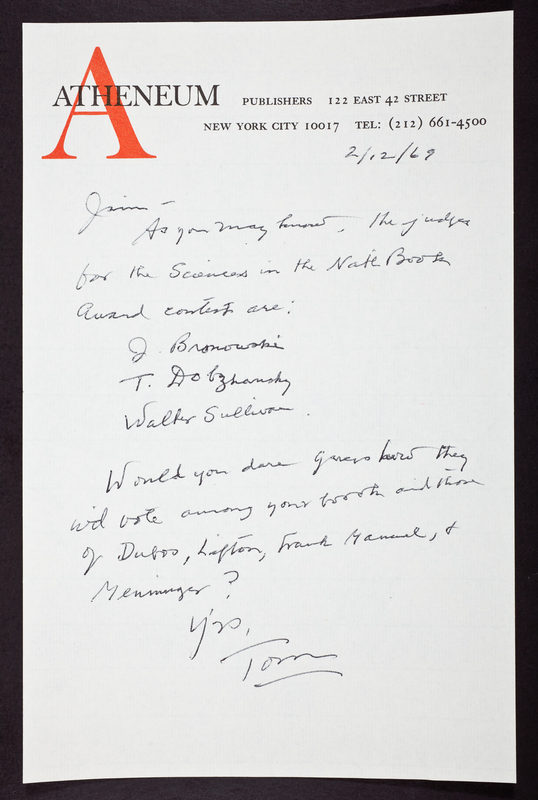 A
ATHENEUM PUBLISHERS 122 EAST 42 STREET
NEW YORK CITY 10017 TEL: (212) 661-4500
2/12/69
Jim –
As you may know, the judges
for the Sciences in the Nat'l Book
Award contest are:
J. Bronowski
T. Dobzhansky
Walter Sullivan.
Would you dare guess how they
wd vote among your book and those
of Dubos, Lifton, Frank Manuel, &
Menninger?
Yrs,
Tom